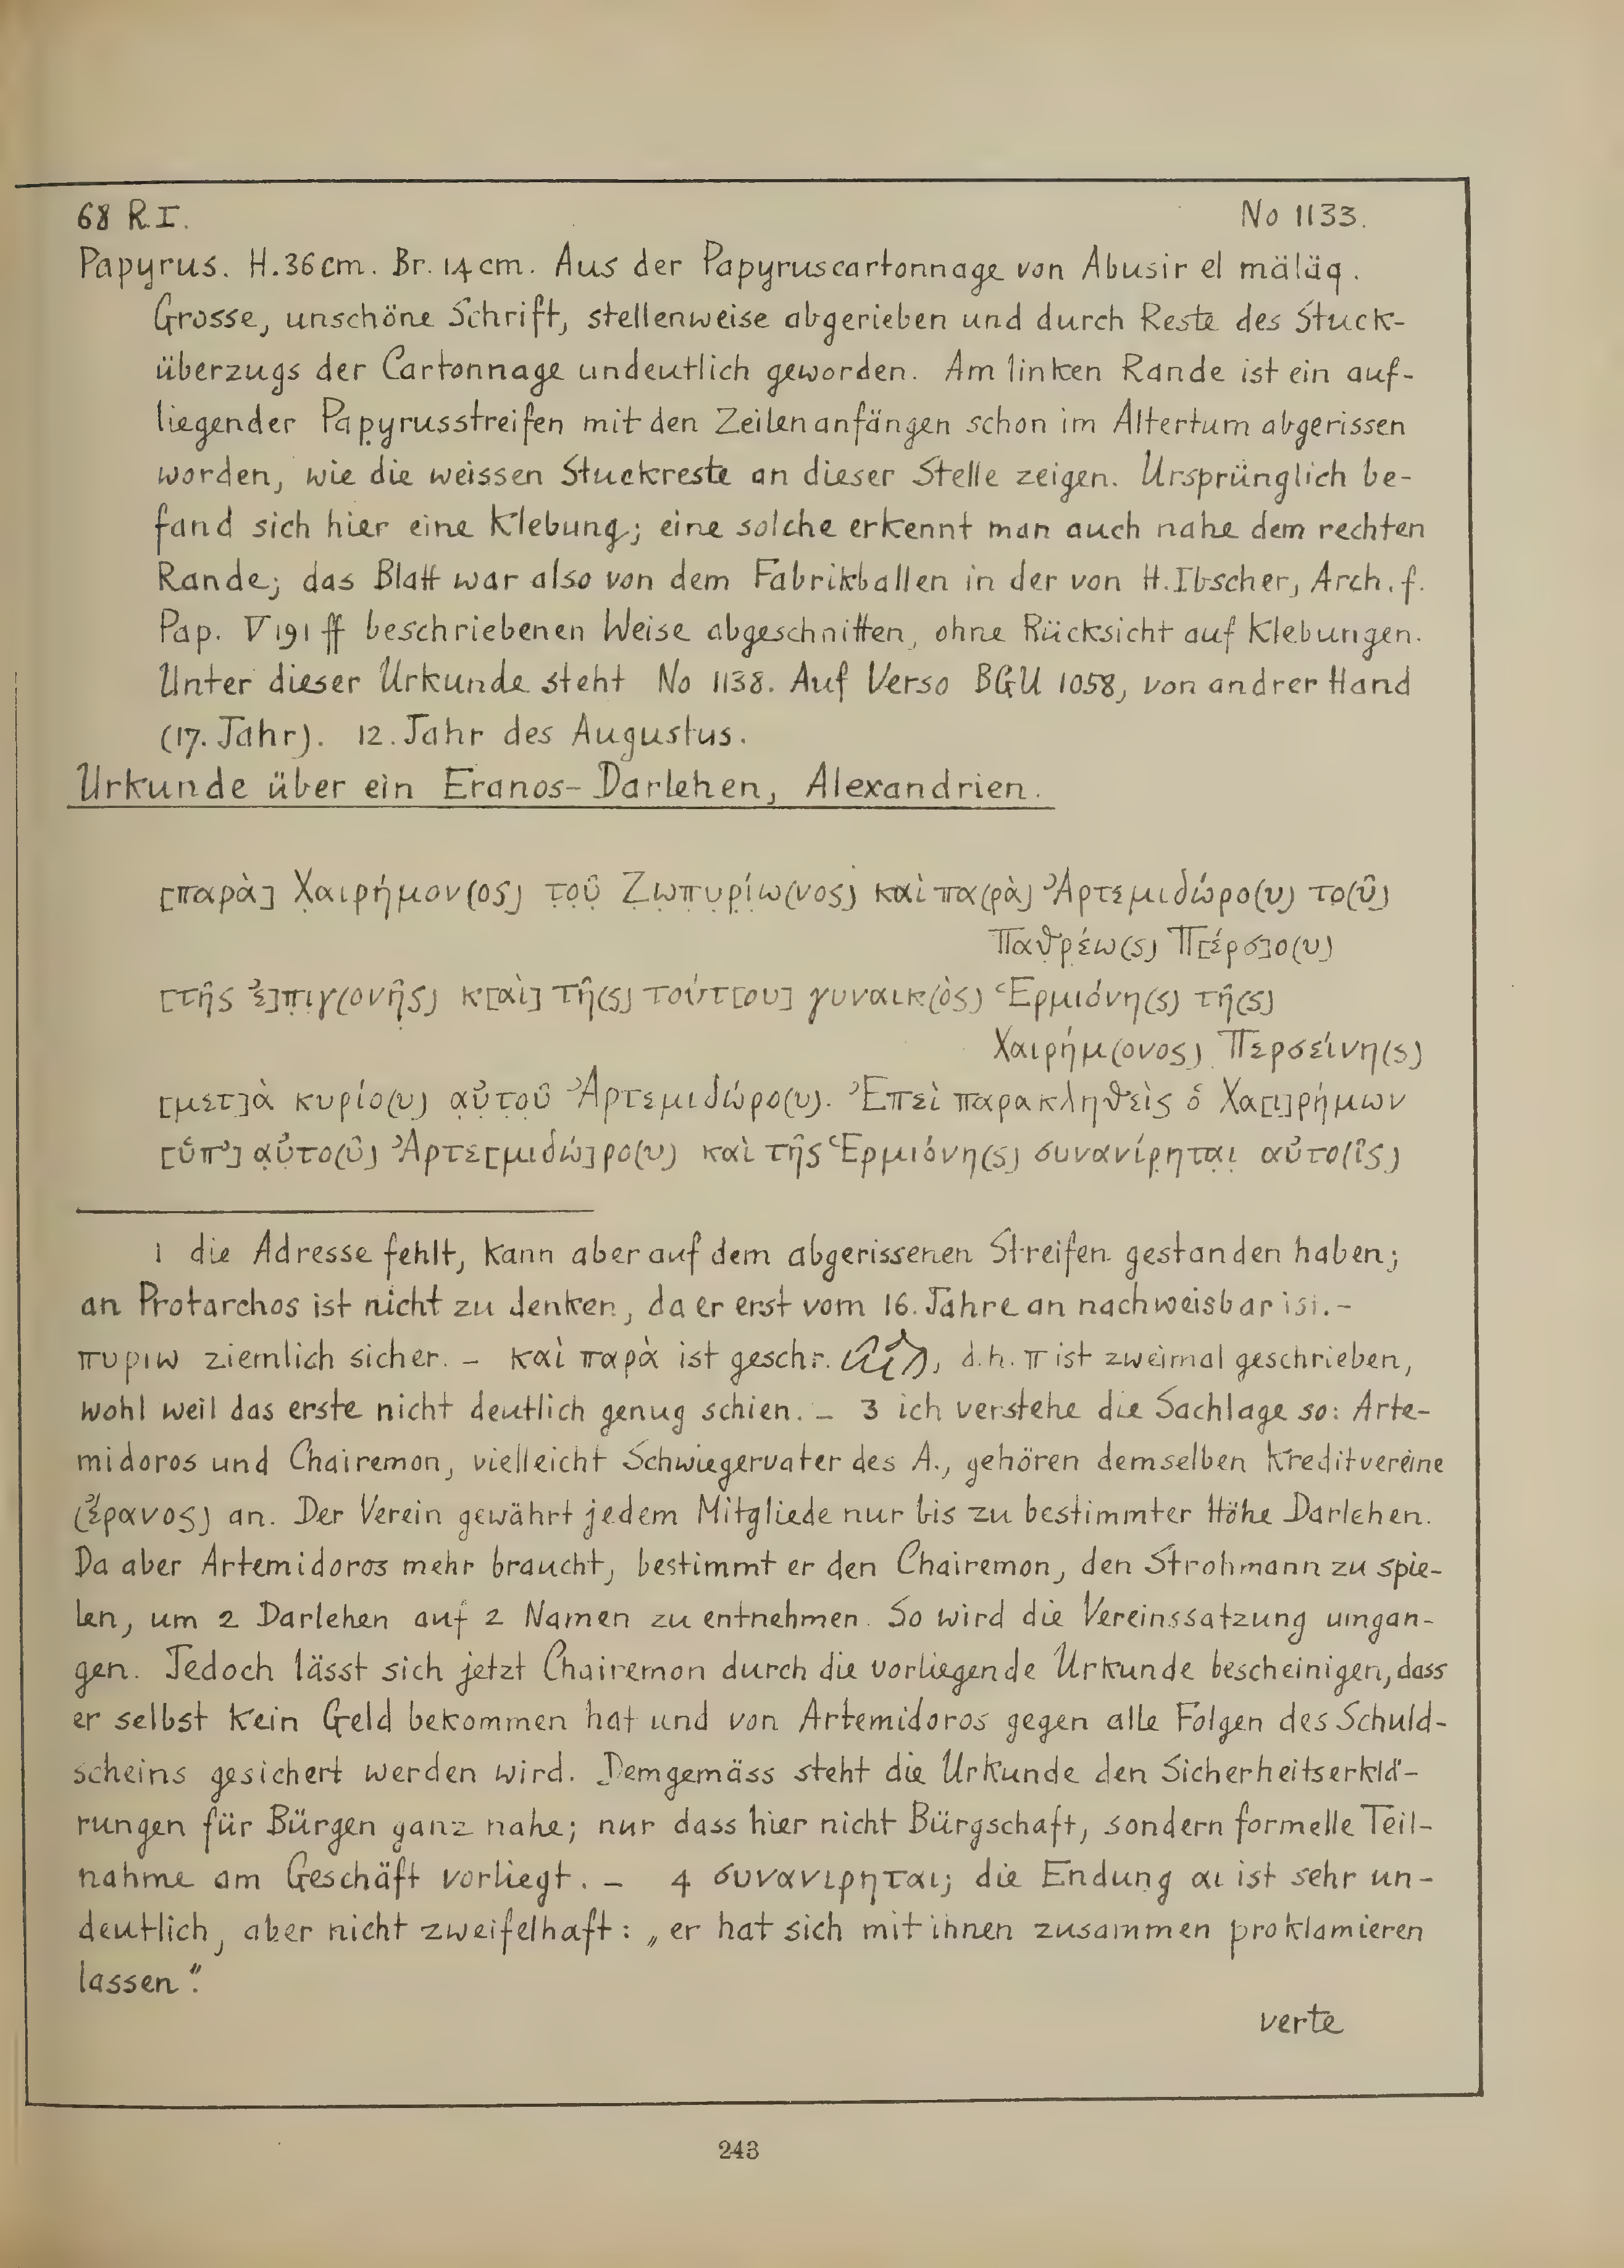 68 R.I. No 1133.
Papyrus. H. 36 cm. Br. 14 cm. Aus der Papyruscartonnage von Abusir el mäläq.
Grosse, unschöne Schrift, stellenweise abgerieben und durch Reste des Stuck-
überzugs der Cartonnage undeutlich geworden. Am linken Rande ist ein auf-
liegender Papyrusstreifen mit den Zeilenanfängen schon im Altertum abgerissen
worden, wie die weissen Stuckreste an dieser Stelle zeigen. Ursprünglich be-
fand sich hier eine Klebung; eine solche erkennt man auch nahe dem rechten
Rande; das Blatt war also von dem Fabrikballen in der von H. Ibscher, Arch. f.
Pap. V 191 ff beschriebenen Weise abgeschnitten, ohne Rücksicht auf Klebungen.
Unter dieser Urkunde steht No 1138. Auf Verso BGU 1058, von andrer Hand
(17. Jahr). 12. Jahr des Augustus.
Urkunde über ein Eranos-Darlehen, Alexandrien.
[παρὰ] Χ̣αιρήμον(ος) τ̣ο̣ῦ̣ Ζ̣ω̣π̣υ̣ρ̣ί̣ω(νος) καὶ πα(ρὰ) Ἀρτεμιδώρο(υ) το̣(ῦ)
Παθ̣ρέω(ς) Π[έρσ]ο(υ)
[τῆς ἐ]π̣ιγ(ονῆς) κ[αὶ] τῆ(ς) τούτ[ου] γυναικ(ὸς) Ἑρμιόνη(ς) τῆ(ς)
Χαιρήμ(ονος) Περσείνη(ς)
[μετ]ὰ κυρίο(υ) α̣ὐ̣τ̣ο̣ῦ Ἀρτεμιδώρο(υ). Ἐπεὶ παρακληθεὶς ὁ Χα[ι]ρήμων
[ὑπ'] α̣ὐτο(ῦ) Ἀρτε[μιδώ]ρο(υ) καὶ τῆς Ἑρμιόνη(ς) συνανίρ̣ητα̣ι̣ αὐτο(ῖς)
1 die Adresse fehlt, kann aber auf dem abgerissenen Streifen gestanden haben;
an Protarchos ist nicht zu denken, da er erst vom 16. Jahre an nachweisbar ist. –
πυριω ziemlich sicher. – καὶ παρὰ ist geschr. , d.h. π ist zweimal geschrieben,
wohl weil das erste nicht deutlich genug schien. – 3 ich verstehe die Sachlage so: Arte-
midoros und Chairemon, vielleicht Schwiegervater des A., gehören demselben Kreditvereine
(ἔρανος) an. Der Verein gewährt jedem Mitgliede nur bis zu bestimmter Höhe Darlehen.
Da aber Artemidoros mehr braucht, bestimmt er den Chairemon, den Strohmann zu spie-
len, um 2 Darlehen auf 2 Namen zu entnehmen. So wird die Vereinssatzung umgan-
gen. Jedoch lässt sich jetzt Chairemon durch die vorliegende Urkunde bescheinigen, dass
er selbst kein Geld bekommen hat und von Artemidoros gegen alle Folgen des Schuld-
scheins gesichert werden wird. Demgemäss steht die Urkunde den Sicherheitserklä-
rungen für Bürgen ganz nahe; nur dass hier nicht Bürgschaft, sondern formelle Teil-
nahme am Geschäft vorliegt. – 4 συνανιρηται; die Endung αι ist sehr un-
deutlich, aber nicht zweifelhaft: „er hat sich mit ihnen zusammen proklamieren
lassen".
verte
243